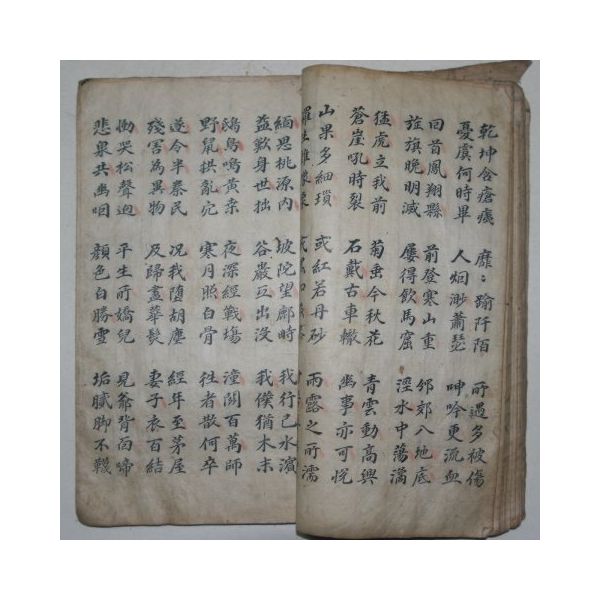 乾坤含瘡痍 靡〻踰阡陌 所遇多被傷
憂虞何時畢 人烟渺蕭瑟 呻吟更流血
回首鳳翔縣 前登寒山重 邠郊八地底
旌旗晚明滅 屢得飲馬窟 涇水中蕩潏
猛虎立我前 菊垂今秋花 青雲動高興
蒼崖吼時裂 石戴古車轍 幽事亦可悅
山果多細瑣 或紅若丹砂 雨露之所濡
緬思桃源内 坡陀望鄜時 我行已水濱
益歎身世拙 谷巖互出没 我僕猶木末
鴟鳥鳴黄桑 夜深經戰塲 潼關百萬師
野鼠拱亂穴 寒月照白骨 徃者散何卒
遂令半秦民 况我墮胡塵 經年至茅屋
殘害為異物 及歸盡華髮 妻子衣百結
慟哭松聲迴 平生所嬌兒 見爺背面啼
悲泉共幽咽 顔色白勝雪 垢膩脚不襪